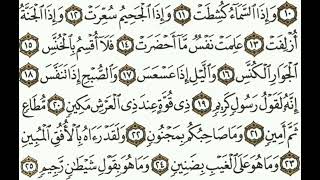 ۝١٠ وَإِذَا ٱلسَّمَآءُ كُشِطَتْ ۝١١ وَإِذَا ٱلْجَحِيمُ سُعِّرَتْ ۝١٢ وَإِذَا ٱلْجَنَّةُ
أُزْلِفَتْ ۝١٣ عَلِمَتْ نَفْسٌ مَّآ أَحْضَرَتْ ۝١٤ فَلَآ أُقْسِمُ بِٱلْخُنَّسِ ۝١٥
ٱلْجَوَارِ ٱلْكُنَّسِ ۝١٦ وَٱلَّيْلِ إِذَا عَسْعَسَ ۝١٧ وَٱلصُّبْحِ إِذَا تَنَفَّسَ ۝١٨
إِنَّهُۥ لَقَوْلُ رَسُولٍ كَرِيمٍ ۝١٩ ذِى قُوَّةٍ عِندَ ذِى ٱلْعَرْشِ مَكِينٍ ۝٢٠ مُّطَاعٍ
ثَمَّ أَمِينٍ ۝٢١ وَمَا صَاحِبُكُم بِمَجْنُونٍ ۝٢٢ وَلَقَدْ رَءَاهُ بِٱلْأُفُقِ ٱلْمُبِينِ
۝٢٣ وَمَا هُوَ عَلَى ٱلْغَيْبِ بِضَنِينٍ ۝٢٤ وَمَا هُوَ بِقَوْلِ شَيْطَٰنٍ رَّجِيمٍ ۝٢٥